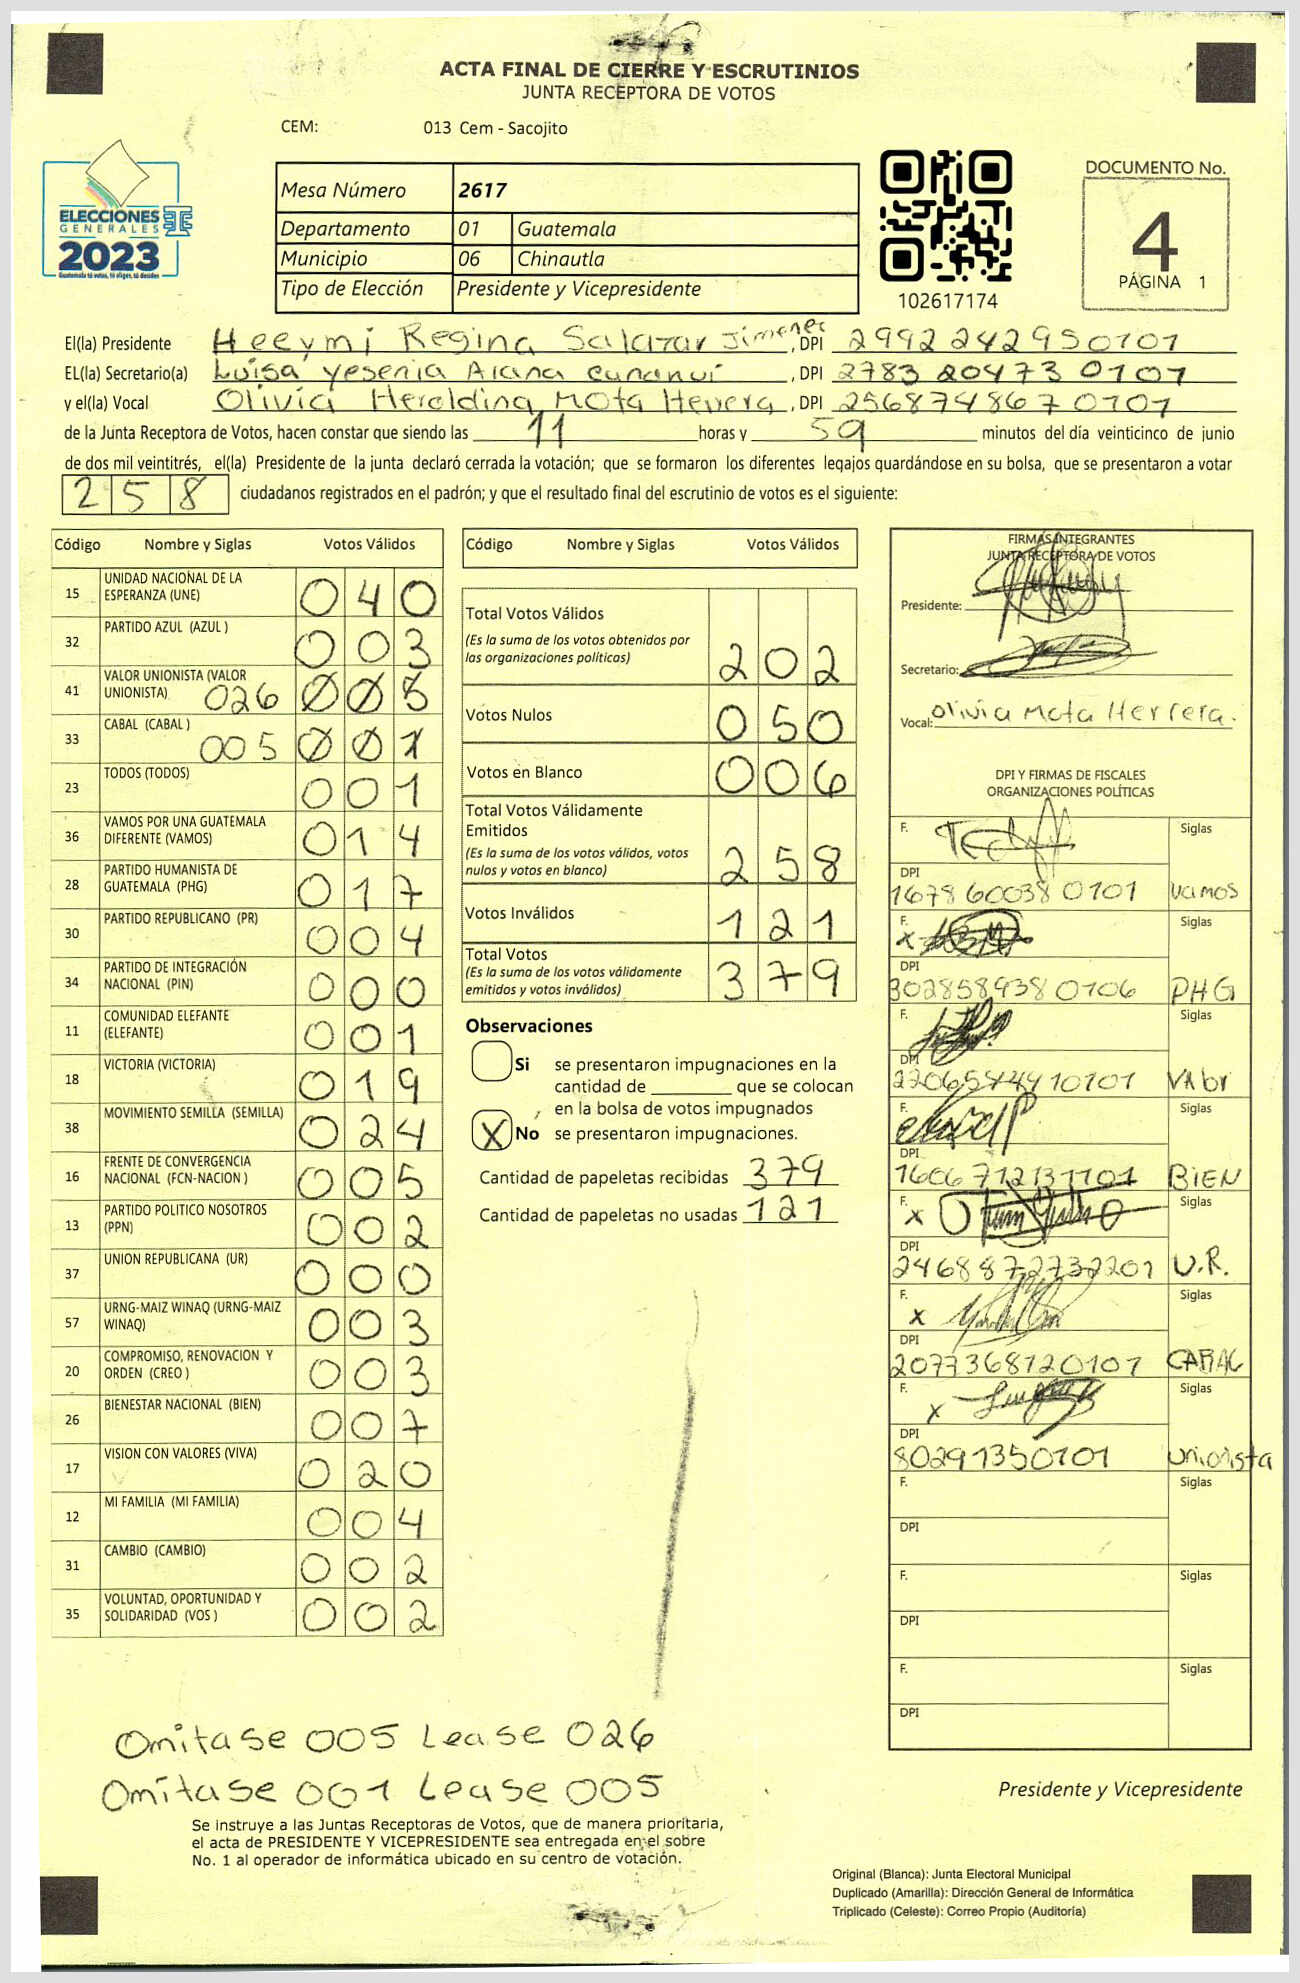 ACTA FINAL DE CIERRE Y ESCRUTINIOS
JUNTA RECEPTORA DE VOTOS
CEM: 013 Cem - Sacojito
ELECCIONES
GENERALES
2023
Guatemala tú votas, tú eliges, tú decides
Mesa Número 2617
Departamento 01 Guatemala
Municipio 06 Chinautla
Tipo de Elección Presidente y Vicepresidente
102617174
DOCUMENTO No.
4
PÁGINA 1
El(la) Presidente Heeymi Regina Salazar Jimenez, DPI 2992242950101
EL(la) Secretario(a) Luisa Yesenia, DPI 2783204730101
y el(la) Vocal Olivia Heraldina Mota Herrera, DPI 2568748670101
de la Junta Receptora de Votos, hacen constar que siendo las 11 horas y 59 minutos del día veinticinco de junio
de dos mil veintitrés, el(la) Presidente de la junta declaró cerrada la votación; que se formaron los diferentes legajos guardándose en su bolsa, que se presentaron a votar
258 ciudadanos registrados en el padrón; y que el resultado final del escrutinio de votos es el siguiente:
Código Nombre y Siglas Votos Válidos
15 UNIDAD NACIONAL DE LA ESPERANZA (UNE) 040
32 PARTIDO AZUL (AZUL ) 003
41 VALOR UNIONISTA (VALOR UNIONISTA) 026 005
33 CABAL (CABAL ) 005 001
23 TODOS (TODOS) 001
36 VAMOS POR UNA GUATEMALA DIFERENTE (VAMOS) 014
28 PARTIDO HUMANISTA DE GUATEMALA (PHG) 017
30 PARTIDO REPUBLICANO (PR) 004
34 PARTIDO DE INTEGRACIÓN NACIONAL (PIN) 000
11 COMUNIDAD ELEFANTE (ELEFANTE) 001
18 VICTORIA (VICTORIA) 019
38 MOVIMIENTO SEMILLA (SEMILLA) 024
16 FRENTE DE CONVERGENCIA NACIONAL (FCN-NACION ) 005
13 PARTIDO POLITICO NOSOTROS (PPN) 002
37 UNION REPUBLICANA (UR) 000
57 URNG-MAIZ WINAQ (URNG-MAIZ WINAQ) 003
20 COMPROMISO, RENOVACION Y ORDEN (CREO ) 003
26 BIENESTAR NACIONAL (BIEN) 007
17 VISION CON VALORES (VIVA) 020
12 MI FAMILIA (MI FAMILIA) 004
31 CAMBIO (CAMBIO) 002
35 VOLUNTAD, OPORTUNIDAD Y SOLIDARIDAD (VOS ) 002
Código Nombre y Siglas Votos Válidos
Total Votos Válidos
(Es la suma de los votos obtenidos por
las organizaciones políticas) 202
Votos Nulos 050
Votos en Blanco 006
Total Votos Válidamente
Emitidos
(Es la suma de los votos válidos, votos
nulos y votos en blanco) 258
Votos Inválidos 121
Total Votos
(Es la suma de los votos válidamente
emitidos y votos inválidos) 379
Observaciones
Si se presentaron impugnaciones en la
cantidad de ________ que se colocan
en la bolsa de votos impugnados
X No se presentaron impugnaciones.
Cantidad de papeletas recibidas 379
Cantidad de papeletas no usadas 121
FIRMAS INTEGRANTES
JUNTA RECEPTORA DE VOTOS
Presidente:
Secretario:
Vocal: Olivia Mota Herrera.
DPI Y FIRMAS DE FISCALES
ORGANIZACIONES POLÍTICAS
F. Siglas
DPI
1678600380101 Vamos
F. x Siglas
DPI
3028589380106 PHG
F. Siglas
DPI
2206544910101 Valor
F. Siglas
DPI
1606712131101 BIEN
F. x Siglas
DPI
2468872732201 U.R.
F. x Siglas
DPI
2077368120101
F. x Siglas
DPI
80291350101 Unionista
F. Siglas
DPI
F. Siglas
DPI
F. Siglas
DPI
Omitase 005 Lease 026
Omitase 001 Lease 005
Presidente y Vicepresidente
Se instruye a las Juntas Receptoras de Votos, que de manera prioritaria,
el acta de PRESIDENTE Y VICEPRESIDENTE sea entregada en el sobre
No. 1 al operador de informática ubicado en su centro de votación.
Original (Blanca): Junta Electoral Municipal
Duplicado (Amarilla): Dirección General de Informática
Triplicado (Celeste): Correo Propio (Auditoría)